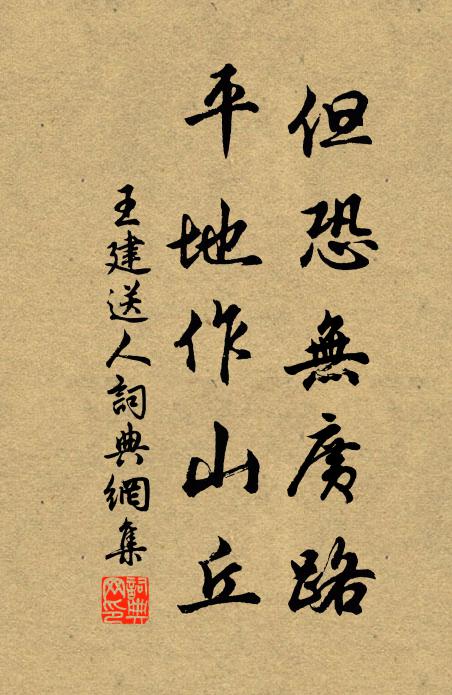 但恐無廣路
平地作山丘
王建送人詞典網集
詞典网印